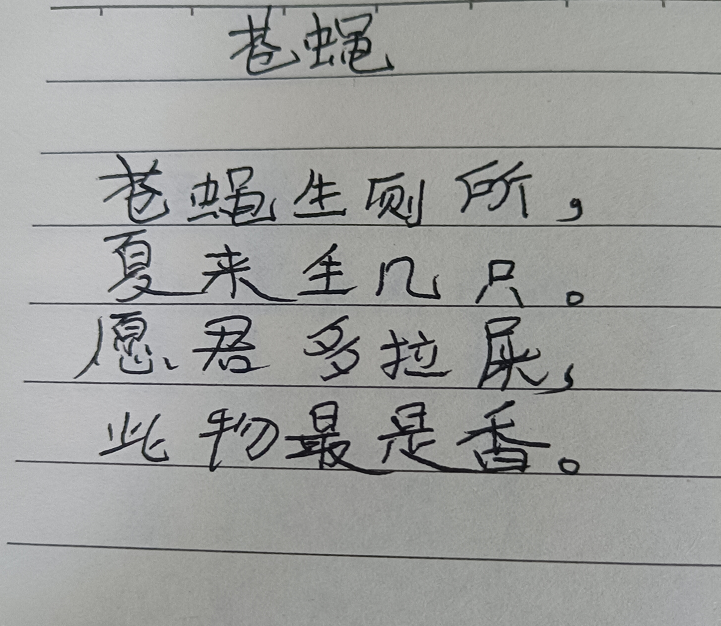 苍蝇
苍蝇生厕所，
夏来生几只。
愿君多拉屎，
此物最是香。